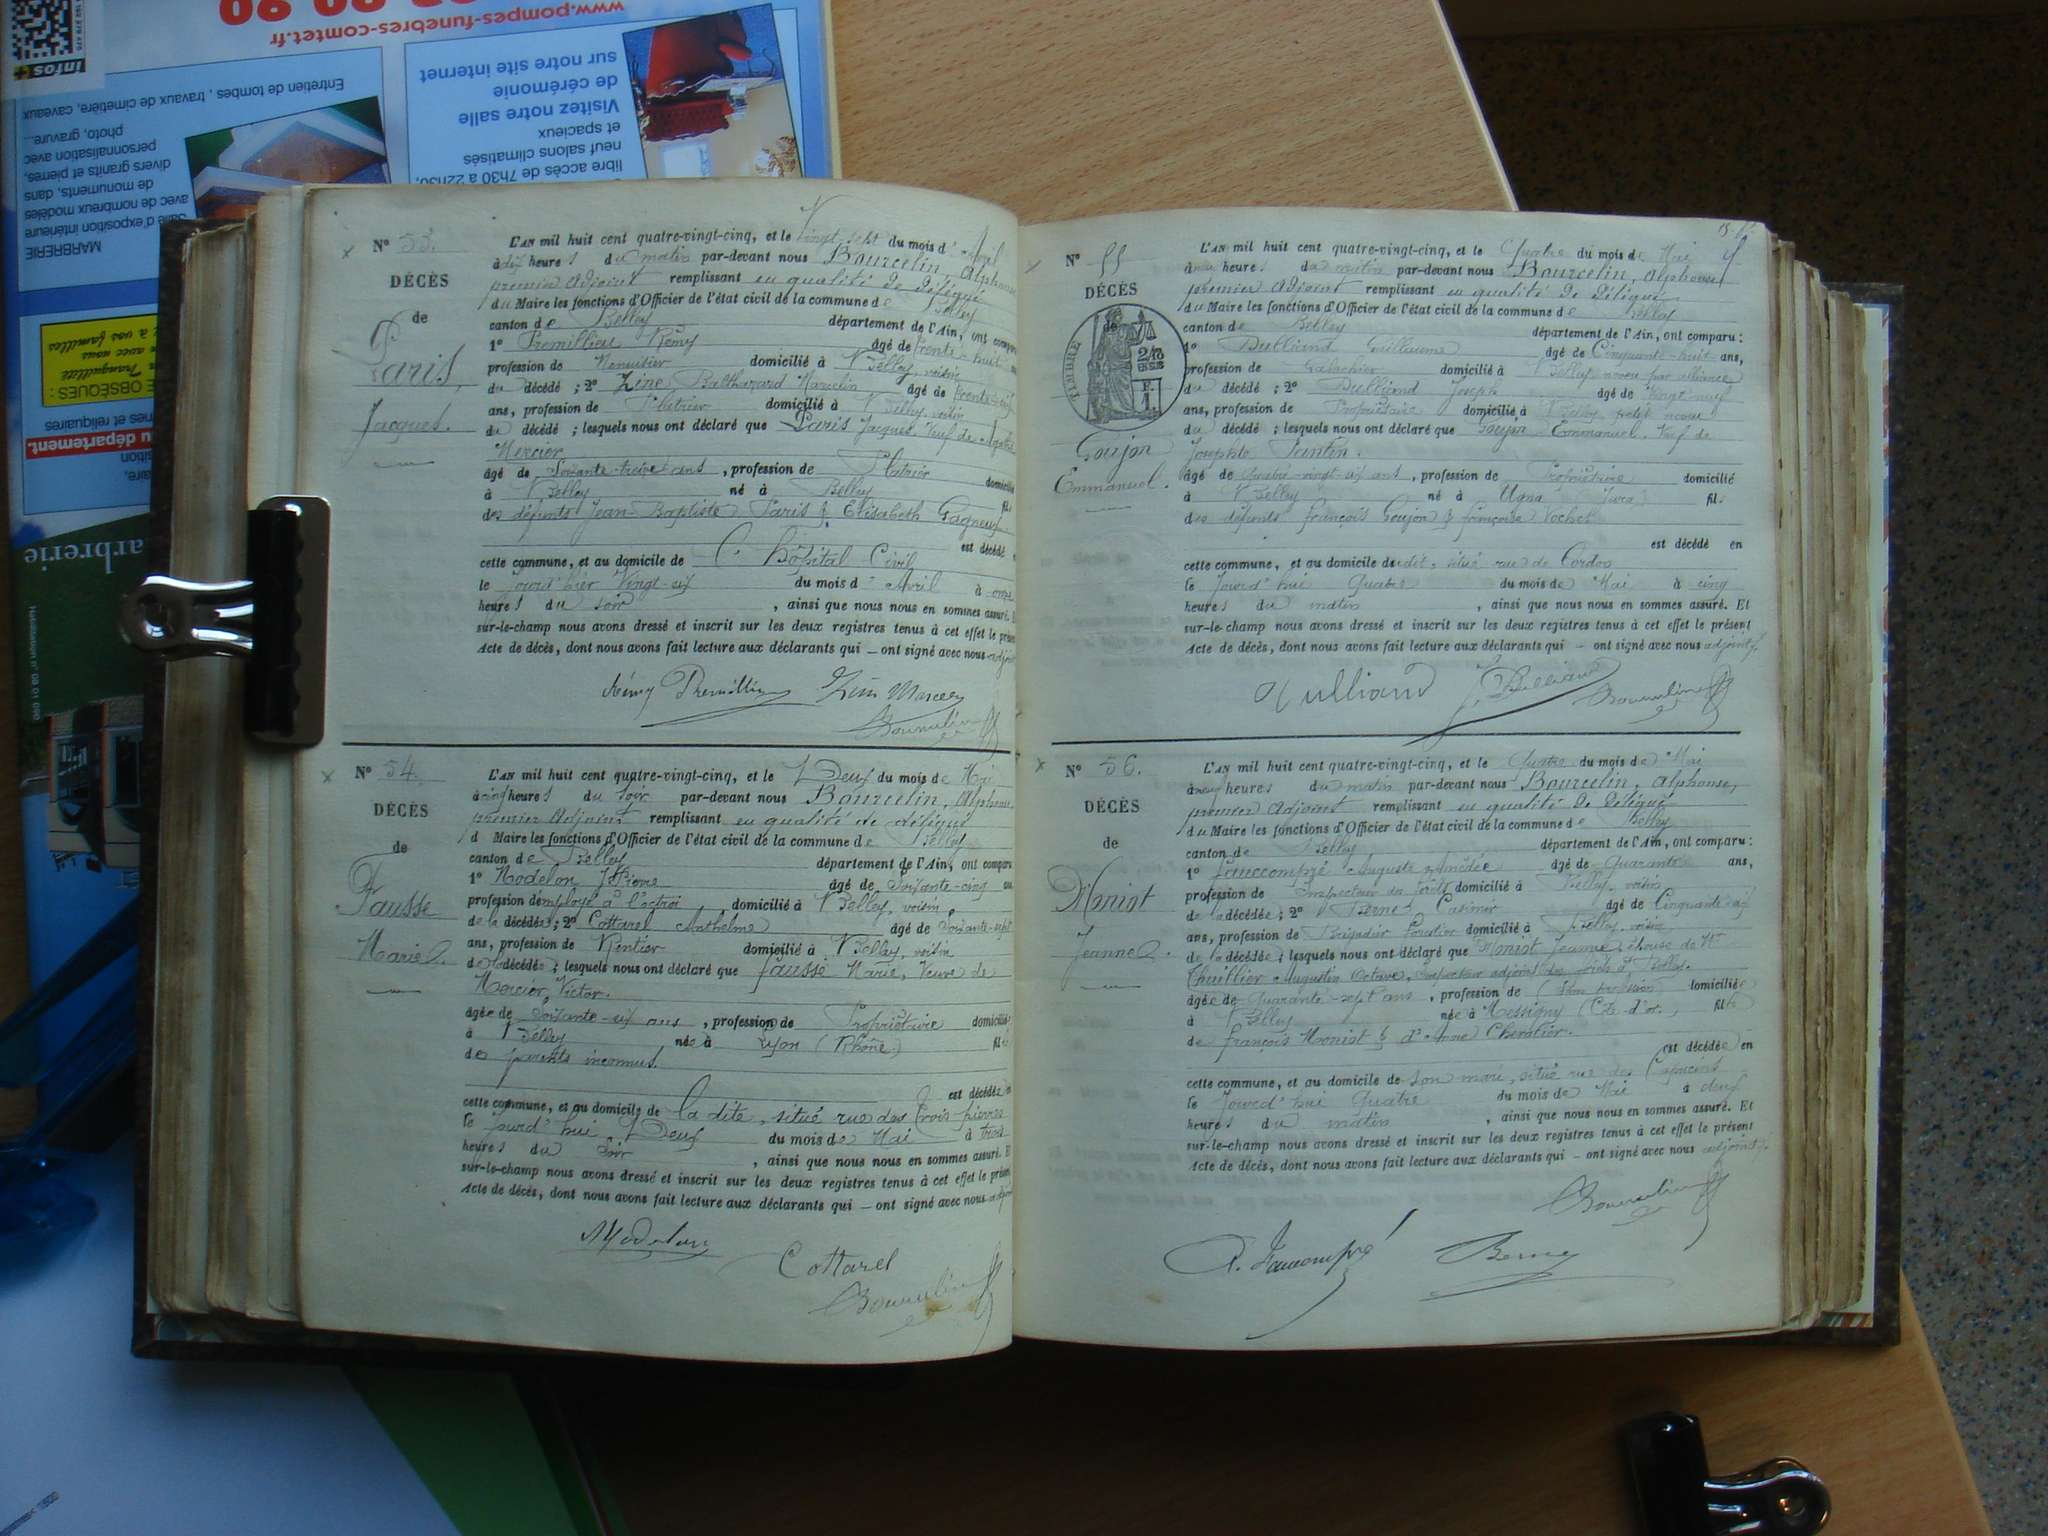 www.pompes-funebres-comtet.fr
infos+
Entretien de tombes, travaux de cimetière, caveaux
photo, gravure...
personnalisation avec
divers granits et pierres,
de monuments, dans
avec de nombreux modèles
Salle d'exposition intérieure
MARBRERIE
Visitez notre salle
de cérémonie
sur notre site internet
libre accès de 7h30 à 22h30,
neuf salons climatisés
et spacieux
OBSÈQUES :
à vos familles
avec nous
Tranquillité
au département.
et reliquaires
arbrerie
Habilitation n° 09 01 090
N° 53.
DÉCÈS
de
Paris,
Jacques.
L'AN mil huit cent quatre-vingt-cinq, et le Vingt-sept du mois d'Avril
à dix heures du matin par-devant nous Bourcelin, Alphonse
premier Adjoint remplissant en qualité de délégué
du Maire les fonctions d'Officier de l'état civil de la commune de Belley
canton de Belley département de l'Ain, ont comparu
1° Premillieu Rémy âgé de trente-huit
profession de Menuisier domicilié à Belley, voisin
du décédé ; 2° Zene Balthazard Marcelin âgé de trente-six
ans, profession de Plâtrier domicilié à Belley, voisin
du décédé ; lesquels nous ont déclaré que Paris Jacques, Veuf de
Mercier
âgé de Soixante-treize ans, profession de Plâtrier domicilié
à Belley né à Belley fils
des défunts Jean-Baptiste Paris & Elisabeth Gagneux
est décédé
cette commune, et au domicile de L'hôpital Civil
le jourd'hier Vingt-six du mois d'Avril à onze
heures du soir, ainsi que nous nous en sommes assuré. Et
sur-le-champ nous avons dressé et inscrit sur les deux registres tenus à cet effet le présent
Acte de décès, dont nous avons fait lecture aux déclarants qui – ont signé avec nous adjoint
Rémy Premillieu
Bourcelin
N° 54.
DÉCÈS
de
Fausse
Marie.
L'AN mil huit cent quatre-vingt-cinq, et le Deux du mois de Mai
à cinq heures du soir par-devant nous Bourcelin, Alphonse
premier Adjoint remplissant en qualité de délégué
d Maire les fonctions d'Officier de l'état civil de la commune de Belley
canton de Belley département de l'Ain, ont comparu
1° Modelon Jh Pierre âgé de Soixante-cinq
profession employé à l'octroi domicilié à Belley, voisin
de la décédée ; 2° Cottarel Anthelme âgé de Soixante-sept
ans, profession de Rentier domicilié à Belley, voisin
de la décédée ; lesquels nous ont déclaré que Fausse Marie, Veuve de
Mercier, Victor.
âgée de Soixante-six ans, profession de Propriétaire domiciliée
à Belley née à Lyon (Rhône) fille
de parents inconnus.
est décédée
cette commune, et au domicile de la dite, situé rue des trois pierres
le jourd'hui Deux du mois de Mai à trois
heures du soir, ainsi que nous nous en sommes assuré. Et
sur-le-champ nous avons dressé et inscrit sur les deux registres tenus à cet effet le présent
Acte de décès, dont nous avons fait lecture aux déclarants qui – ont signé avec nous adjoint
Modelon
Cottarel
Bourcelin
N° 55
DÉCÈS
de
TIMBRE
Goujon
Emmanuel.
L'AN mil huit cent quatre-vingt-cinq, et le Quatre du mois de Mai
à heures du matin par-devant nous Bourcelin, Alphonse
premier Adjoint remplissant en qualité de délégué
du Maire les fonctions d'Officier de l'état civil de la commune de Belley
canton de Belley département de l'Ain, ont comparu :
1° Dulliand Guillaume âgé de Cinquante-huit ans,
profession de domicilié à Belley neveu par alliance
du décédé ; 2° Dulliand Joseph âgé de Vingt-neuf
ans, profession de Propriétaire domicilié à Belley petit neveu
du décédé ; lesquels nous ont déclaré que Goujon Emmanuel, Veuf de
Josephte
âgé de quatre-vingt-six ans, profession de Propriétaire domicilié
à Belley né à Ugna (Jura) fils
des défunts François Goujon & Françoise Vochet
est décédé en
cette commune, et au domicile dudit, situé rue de Cordon
le Jourd'hui Quatre du mois de Mai à cinq
heures du matin, ainsi que nous nous en sommes assuré. Et
sur-le-champ nous avons dressé et inscrit sur les deux registres tenus à cet effet le présent
Acte de décès, dont nous avons fait lecture aux déclarants qui – ont signé avec nous adjoint.
Dulliand J. Dulliand
Bourcelin
N° 56.
DÉCÈS
de
Moniot
Jeanne.
L'AN mil huit cent quatre-vingt-cinq, et le Quatre du mois de Mai
à neuf heures du matin par-devant nous Bourcelin, Alphonse,
premier Adjoint remplissant en qualité de délégué
du Maire les fonctions d'Officier de l'état civil de la commune de Belley
canton de Belley département de l'Ain, ont comparu :
1° Fauccompré Auguste Amédée âgé de Quarante ans,
profession de Inspecteur des forêts domicilié à Belley, voisin
de la décédée ; 2° Berne Casimir âgé de Cinquante-six
ans, profession de Brigadier forestier domicilié à Belley, voisin
de la décédée ; lesquels nous ont déclaré que Moniot Jeanne, épouse de Mr
Thuillier Augustin Octave, inspecteur adjoint des forêts à Belley.
âgée de Quarante-sept ans, profession de (Sans profession) domiciliée
à Belley née à Messigny (Côte d'or, fille
de François Moniot & d'Anne Chevalier.
est décédée en
cette commune, et au domicile de son mari, situé rue des Capucins
le Jourd'hui Quatre du mois de Mai à deux
heures du matin, ainsi que nous nous en sommes assuré. Et
sur-le-champ nous avons dressé et inscrit sur les deux registres tenus à cet effet le présent
Acte de décès, dont nous avons fait lecture aux déclarants qui – ont signé avec nous adjoint.
Bourcelin
A. Fauccompré
Berne